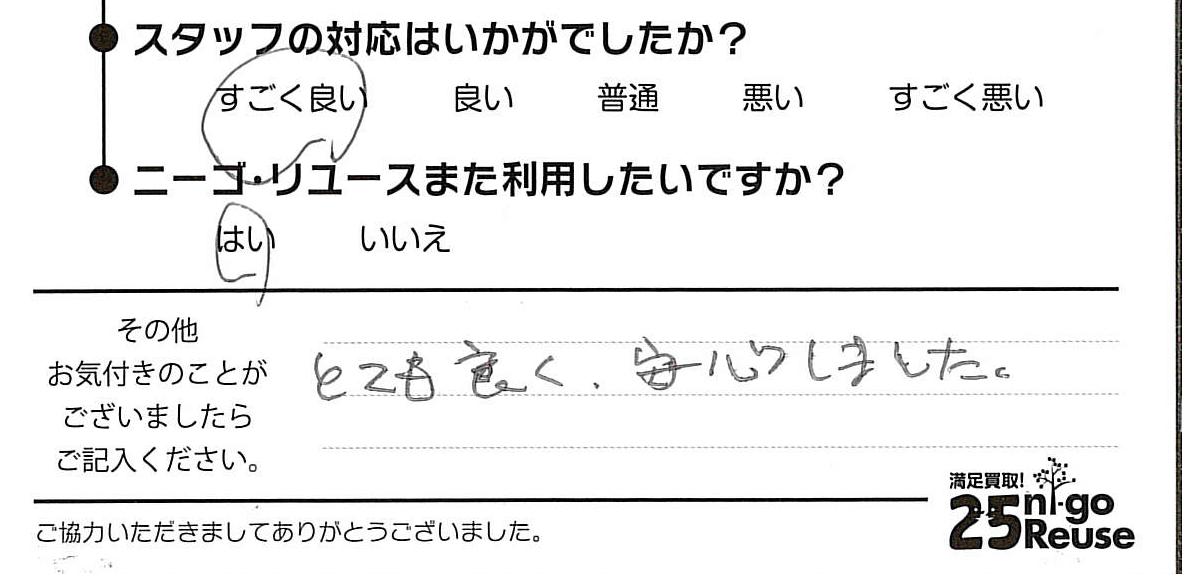 スタッフの対応はいかがでしたか？
すごく良い 良い 普通 悪い すごく悪い
ニーゴ・リユースまた利用したいですか？
はい いいえ
その他
お気付きのことが
ございましたら
ご記入ください。
とても良く、安心しました。
満足買取!
25 ni-go
Reuse
ご協力いただきましてありがとうございました。